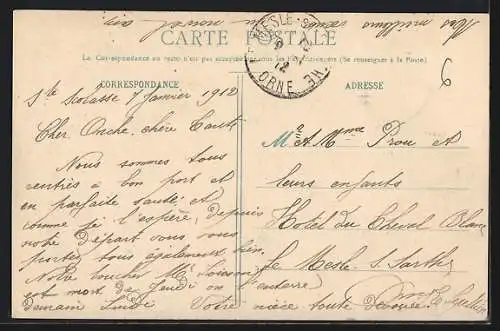 CARTE POSTALE
La Correspondance au recto n'est pas acceptée par tous les Pays étrangers (Se renseigner à la Poste)
CORRESPONDANCE
ADRESSE
LE MESLE-S
ORNE
6
7 Janvier 1912
Cher Oncle, chère Tante
Nous sommes tous
rentrés à bon port et
en parfaite santé et
comme je l'espère, depuis
notre départ vous vous
portez tous également bien.
Notre
est mort de Jeudi on l'enterre
demain Lundi Votre nièce toute dévouée
M. & Mme Prou et
leurs enfants
Hôtel du Cheval Blanc
Le Mesle s. Sarthe